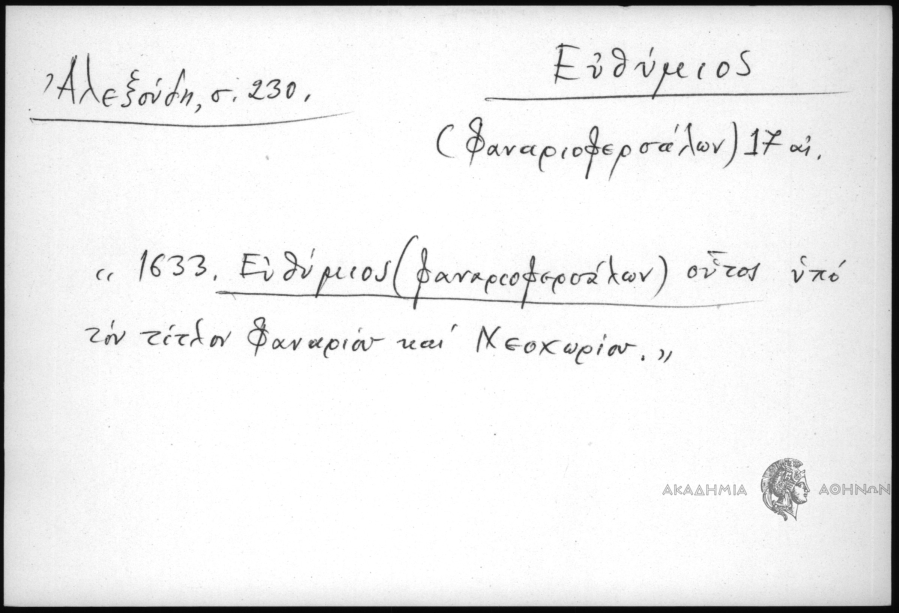 Ἀλεξούδη, σ. 230.
Εὐθύμιος
(Φαναριοφερσάλων) 17 αἰ.
« 1633. Εὐθύμιος (Φαναριοφερσάλων) οὗτος ὑπό
τόν τίτλον Φαναρίου καί Νεοχωρίου. »
ΑΚΑΔΗΜΙΑ ΑΘΗΝΩΝ